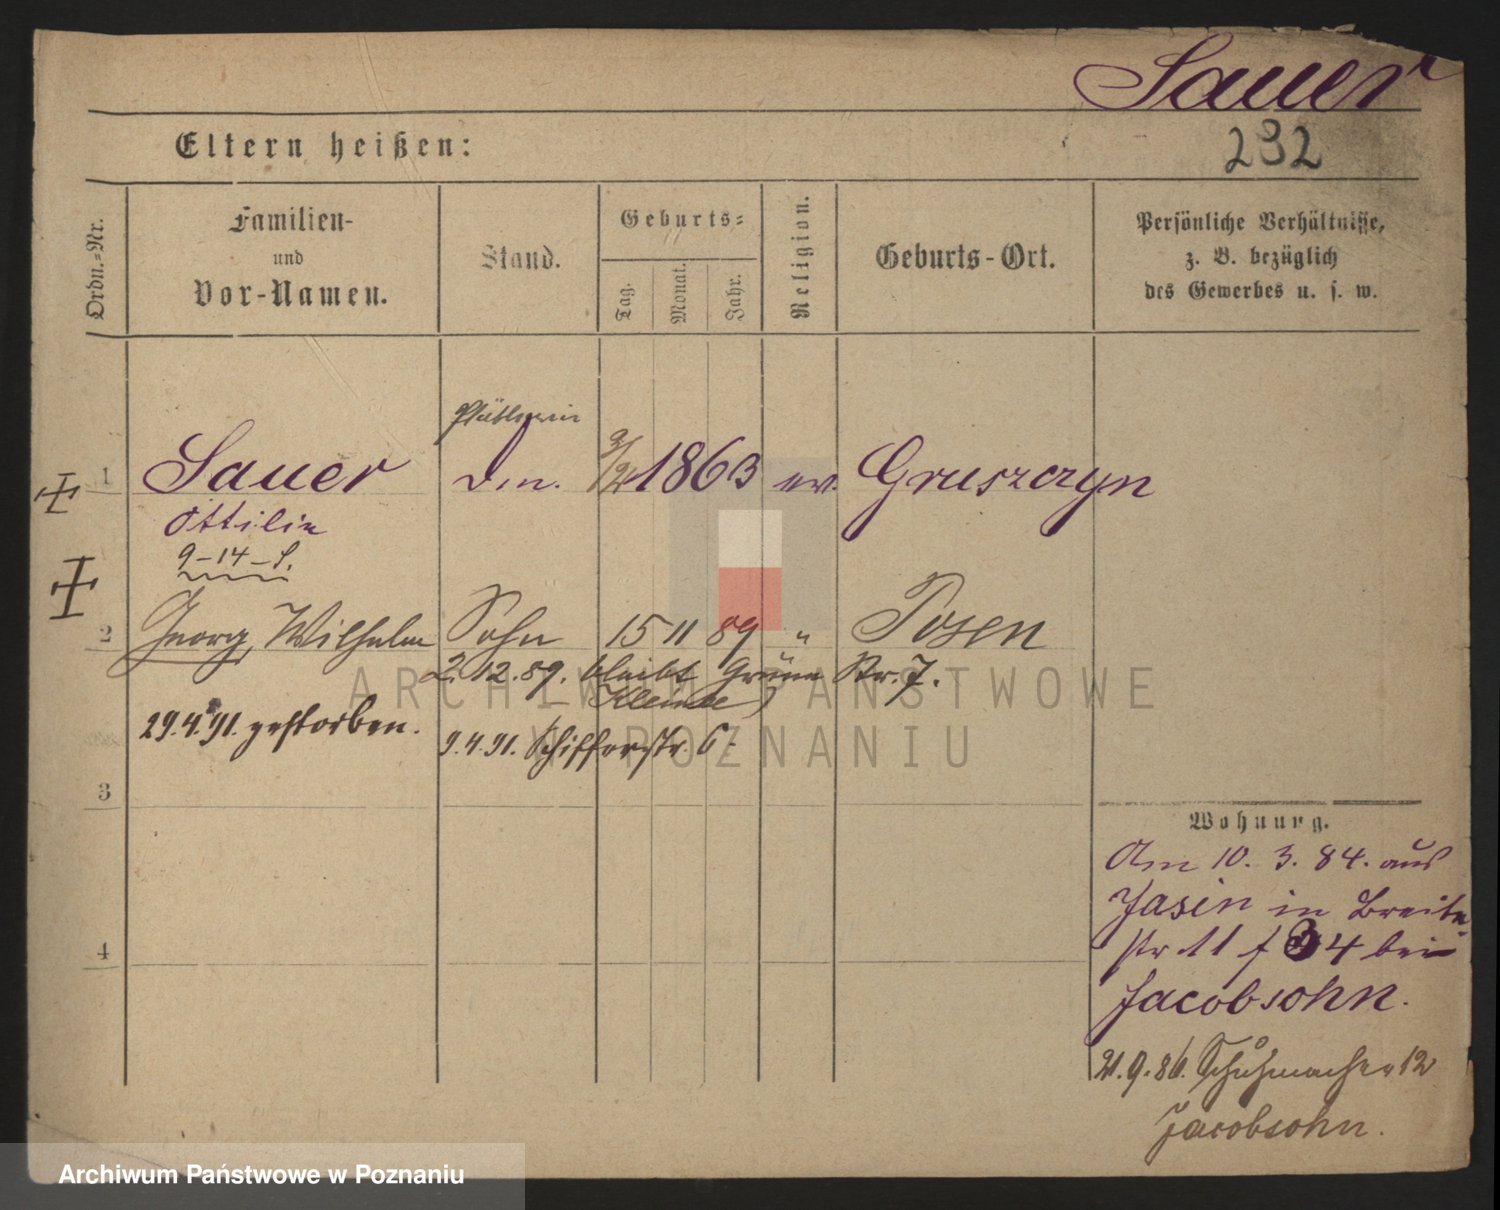 Sauer
232
Eltern heißen:
Ordn.=Nr.
Familien-
und
Vor-Namen.
Stand.
Geburts=
Tag.
Monat.
Jahr.
Religion.
Geburts-Ort.
Persönliche Verhältnisse,
z. B. bezüglich
des Gewerbes u. s. w.
Plätterin
1 Sauer 1863 ev. Gruszczyn
Ottilie
9-14-
2 Georg, Wilhelm Sohn 15 11 89 " Posen
2.12.89. bleibt Grüne Str. 7.
29.4.91. gestorben.
9.4.91. Schifferstr. 6.
3
4
Wohnung.
Am 10. 3. 84. aus
Jasin in Breite-
str 11 4 bei
Jacobsohn.
21.9.86. Schuhmacher 12
Jacobsohn.
ARCHIWUM PAŃSTWOWE
W POZNANIU
Archiwum Państwowe w Poznaniu